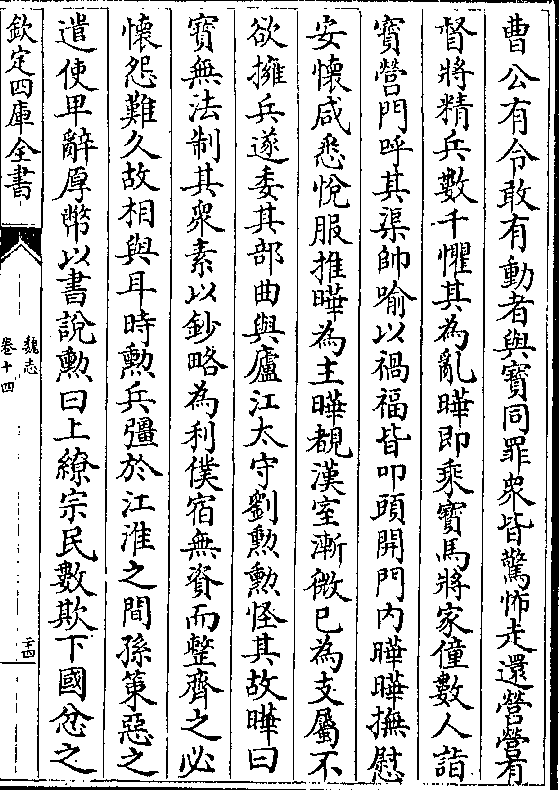 曹公有令敢有動者與寳同罪衆皆驚怖走還營營有
督將精兵數千懼其為亂曄即乗寳馬將家僮數人詣
寳營門呼其渠帥喻以禍福皆叩頭開門内曄曄撫慰
安懷咸悉悅服推曄為主曄覩漢室漸微已為支屬不
欲擁兵遂委其部曲與廬江太守劉勲勲怪其故曄曰
寳無法制其衆素以鈔略為利僕宿無資而整齊之必
懷怨難久故相與耳時勲兵彊於江淮之間孫策惡之
遣使卑辭厚幣以書說勲曰上繚宗民數欺下國忿之
欽定四庫全書
魏志
卷十四
二十四